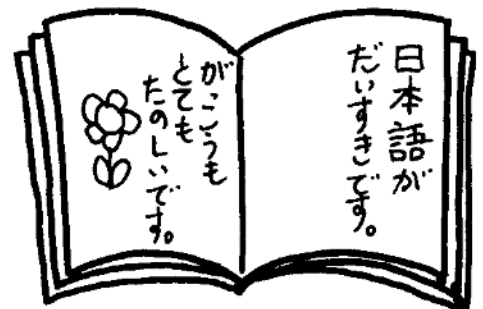 日本語が
だいすきです。
がこうも
とても
たのしいです。